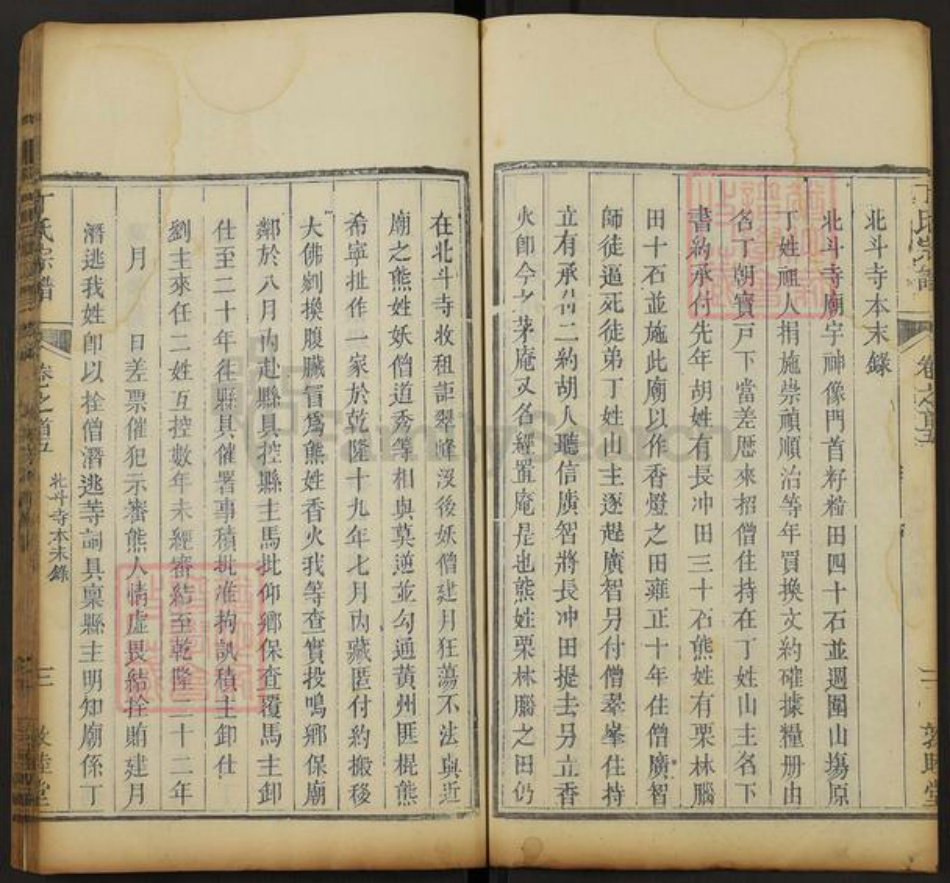 北斗寺本末錄
北斗寺廟宇神像門首籽粒田四十石並週圍山塲原
丁姓祖人捐施崇禎順治等年買換文約確據糧册由
名丁朝寶戸下當差歷來招僧住持在丁姓山主名下
書約承付先年胡姓有長冲田三十石熊姓有栗林腦
田十石並施此廟以作香燈之田雍正十年住僧廣智
師徒逼死徒弟丁姓山主逐趕廣智另付僧翠峯住持
立有承付二約胡人聽信廣智將長冲田提去另立香
火卽今之茅庵又名經置庵是也熊姓栗林腦之田仍
在北斗寺收租詎翠峰沒後妖僧建月狂蕩不法與近
廟之熊姓妖僧道秀等相與莫逆並勾通黃州匪棍熊
希寧扯作一家於乾隆十九年七月內藏匿付約搬移
大佛剜換腹臟冒爲熊姓香火我等查實投鳴鄉保廟
鄰於八月內赴縣具控縣主馬批仰鄉保查覆馬主卸
仕至二十年往縣具催署事積批准拘訊積主卸仕
劉主來任二姓互控數年未經審結至乾隆二十二年
月 日差票催犯示審熊人情虛畏結拴賄建月
潛逃我姓卽以拴僧潛逃等詞具稟縣主明知廟係丁
丁氏宗譜 卷之首五 北斗寺本末錄 三 敦睦堂
丁氏宗譜 卷之首五 敦睦堂
FamilySearch